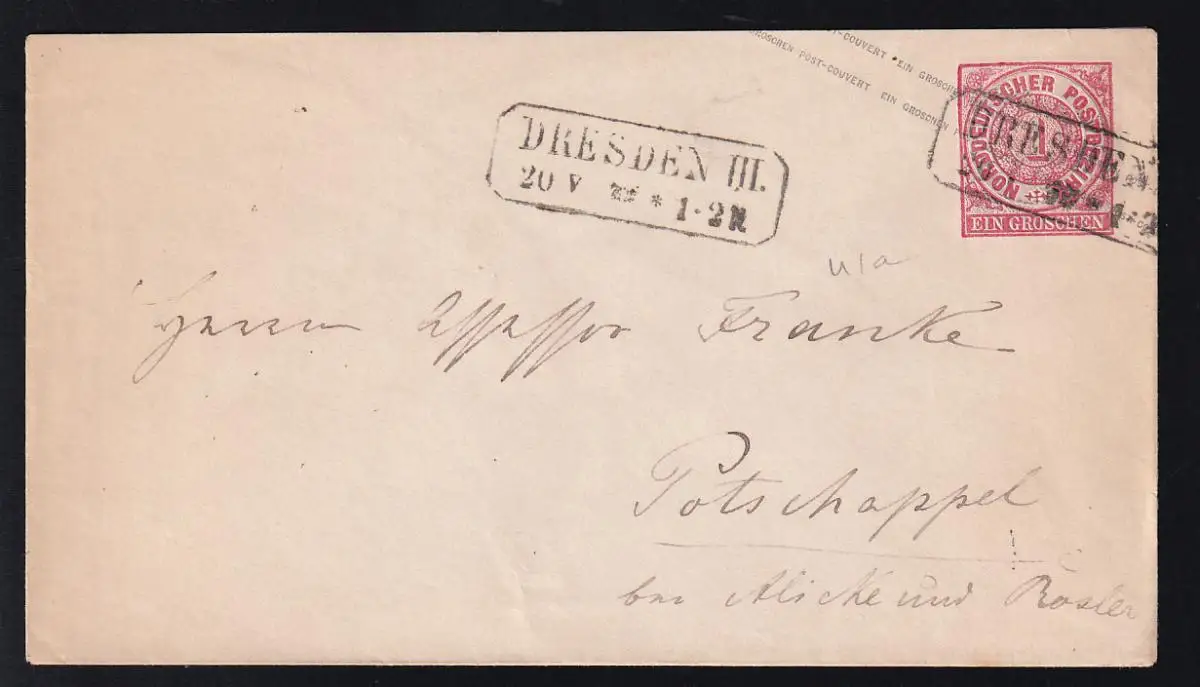 POST-COUVERT EIN GROSCHEN
GROSCHEN POST-COUVERT EIN GROSCHEN
NORDDEUTSCHER POSTBEZIRK
1
EIN GROSCHEN
DRESDEN III.
20 V * 1-2N
DRESDEN
* 1-2
u/a
Herrn Assessor Franke
Potschappel
bei Alicke und Rösler